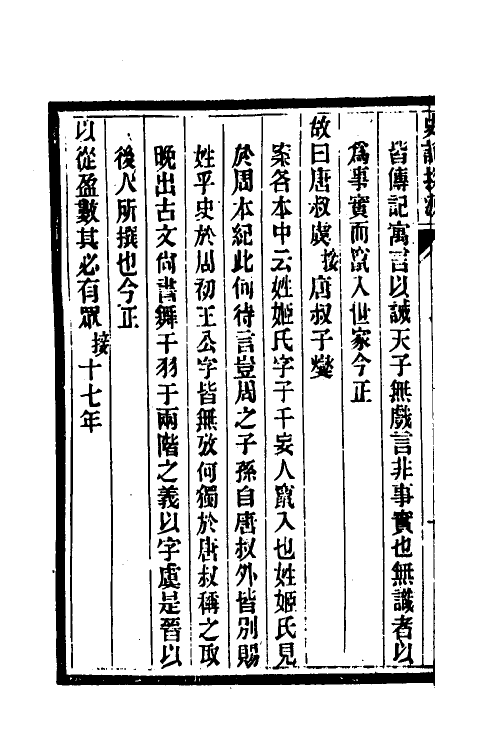 皆傳記寓言以誡天子無戲言非事實也無識者以
爲事實而竄入世家今正
故曰唐叔虞 按 唐叔子燮
案各本中云姓姬氏字子干妄人竄入也姓姬氏見
於周本紀此何待言豈周之子孫自唐叔外皆別賜
姓乎史於周初王公字皆無攷何獨於唐叔稱之取
晚出古文尙書舞干羽于兩階之義以字虞是晉以
後人所撰也今正
以從盈數其必有眾 接 十七年